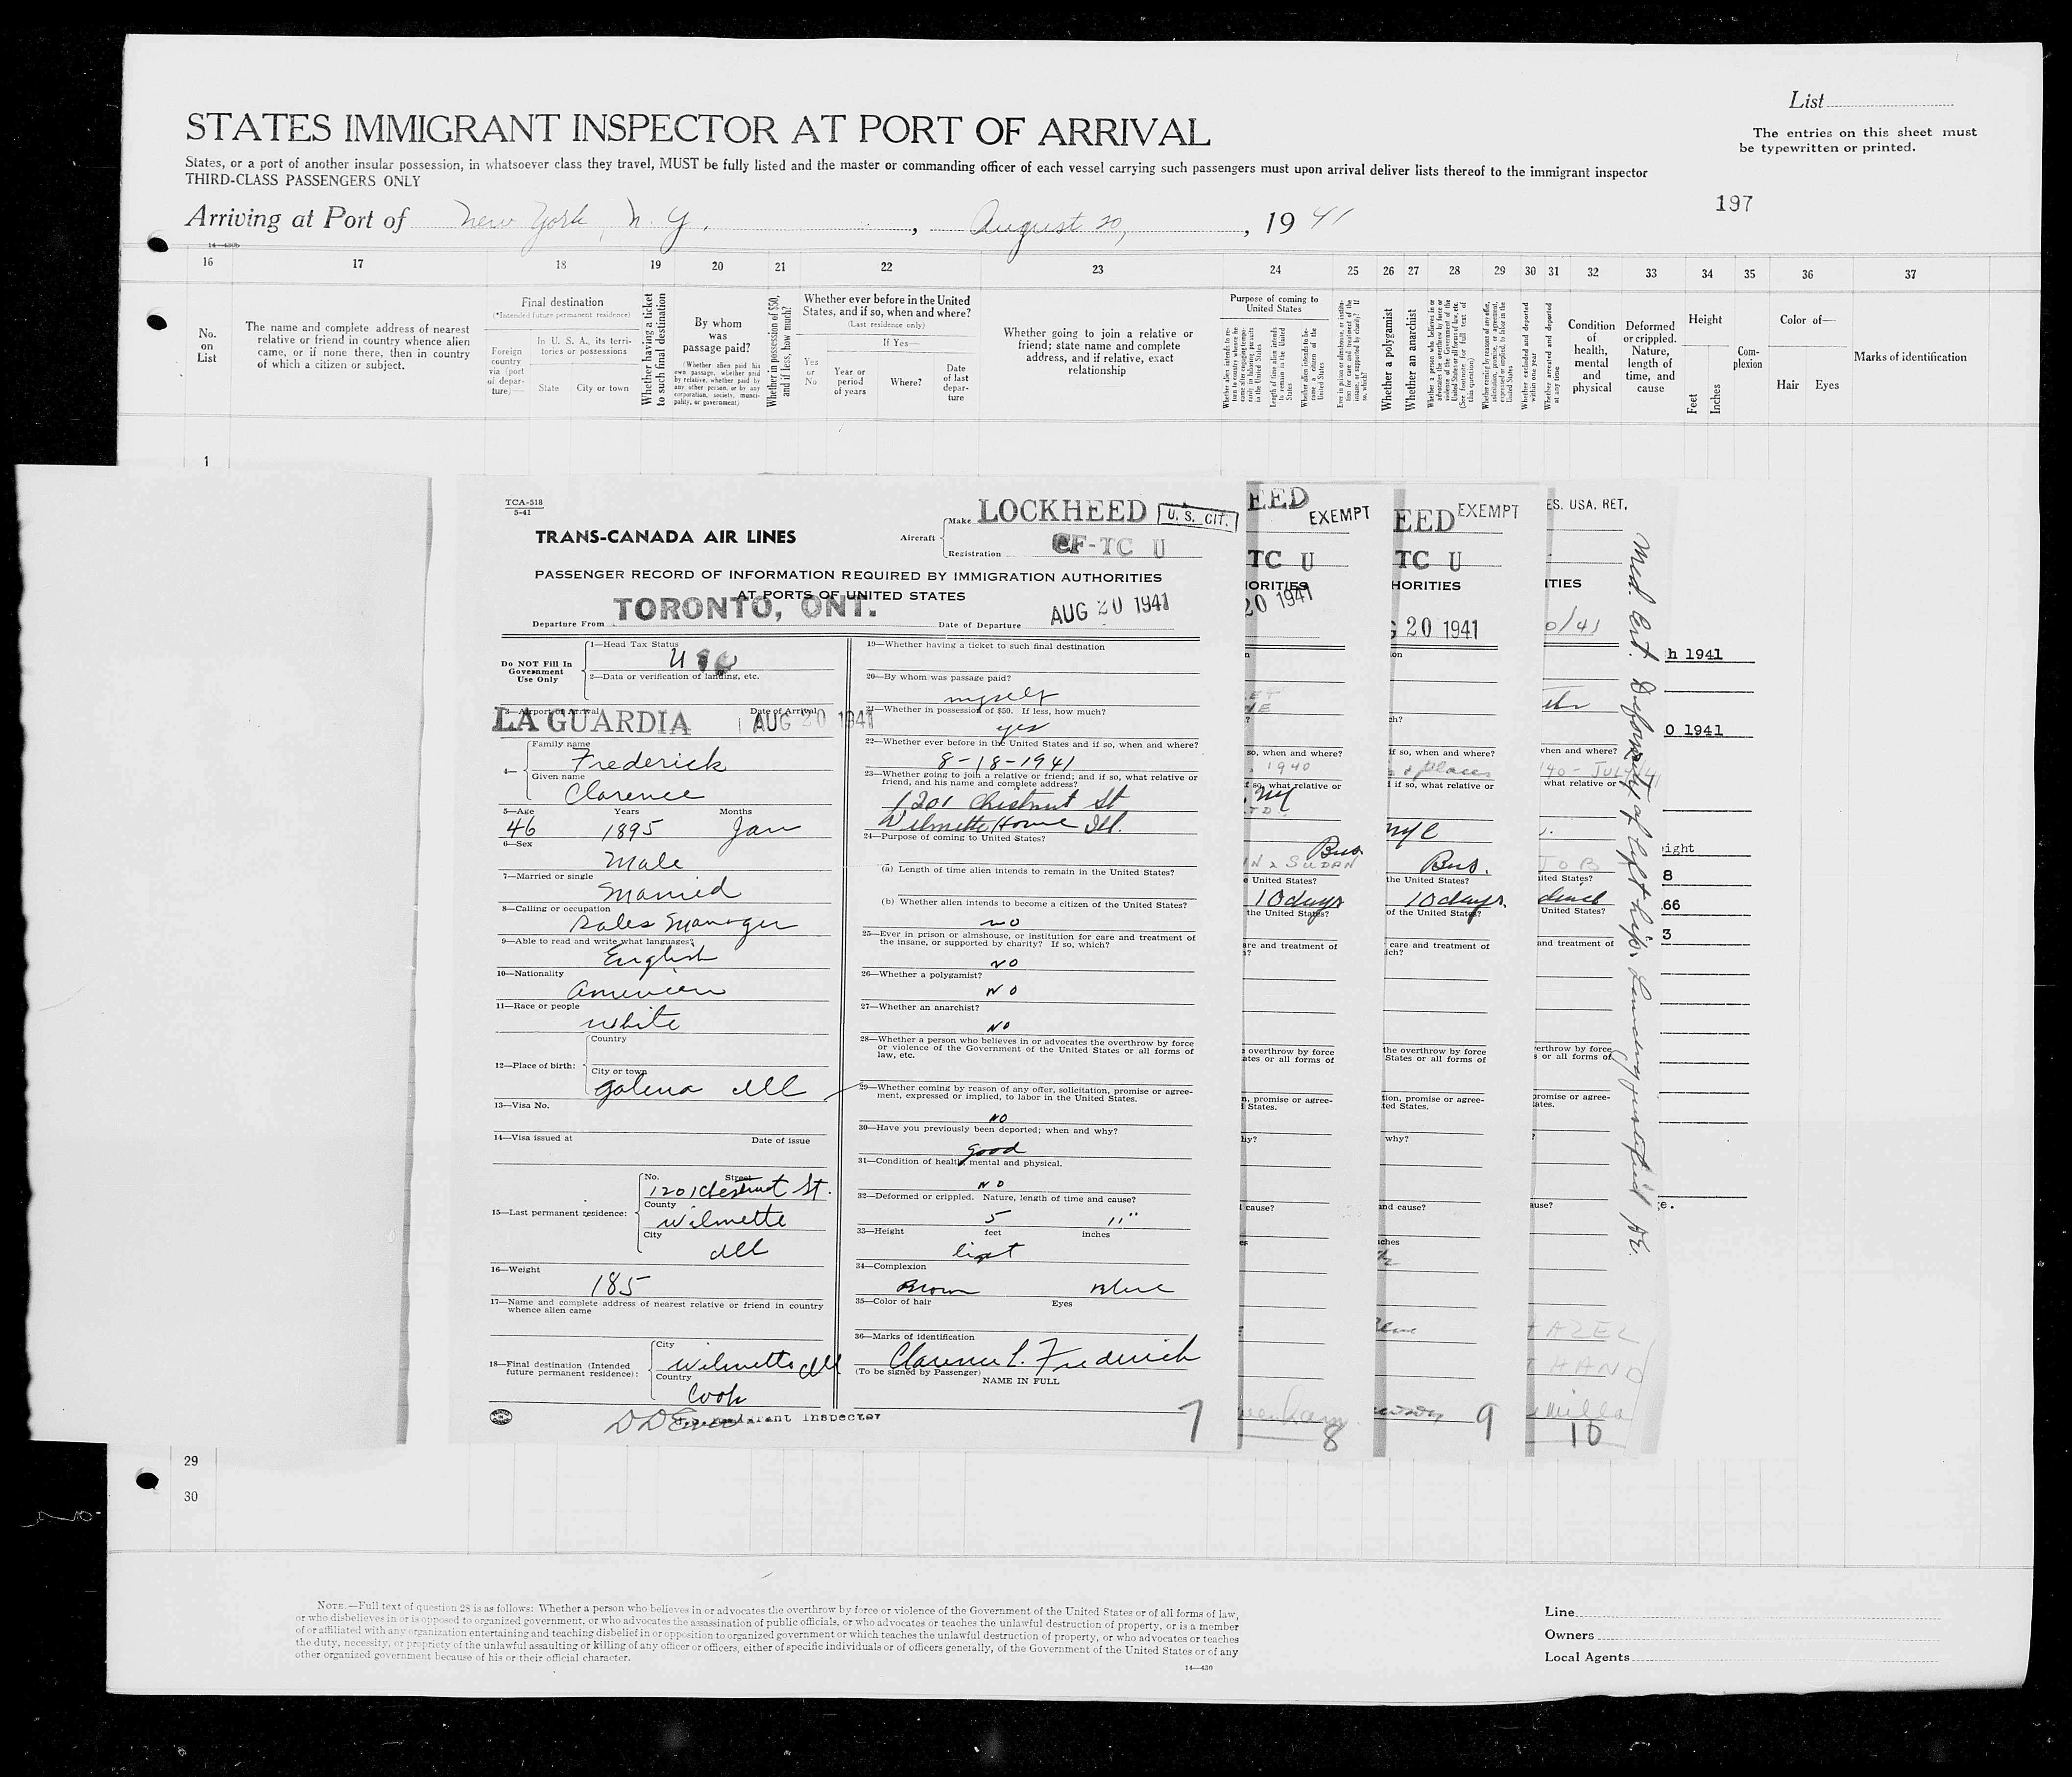 List
STATES IMMIGRANT INSPECTOR AT PORT OF ARRIVAL
The entries on this sheet must
be typewritten or printed.
States, or a port of another insular possession, in whatsoever class they travel, MUST be fully listed and the master or commanding officer of each vessel carrying such passengers must upon arrival deliver lists thereof to the immigrant inspector
THIRD-CLASS PASSENGERS ONLY
197
Arriving at Port of New York, N. Y. , August 20, , 19 41
14—430b
16 17 18 19 20 21 22 23 24 25 26 27 28 29 30 31 32 33 34 35 36 37
No.
on
List
The name and complete address of nearest
relative or friend in country whence alien
came, or if none there, then in country
of which a citizen or subject.
Final destination
(*Intended future permanent residence)
Foreign
country
via (port
of depar-
ture)—
In U. S. A., its terri-
tories or possessions
State City or town
Whether having a ticket
to such final destination
By whom
was
passage paid?
(Whether alien paid his
own passage, whether paid
by relative, whether paid by
any other person, or by any
corporation, society, munici-
pality, or government)
Whether in possession of $50,
and if less, how much?
Whether ever before in the United
States, and if so, when and where?
(Last residence only)
If Yes—
Yes
or
No
Year or
period
of years
Where?
Date
of last
depar-
ture
Whether going to join a relative or
friend; state name and complete
address, and if relative, exact
relationship
Purpose of coming to
United States
Whether a polygamist
Whether an anarchist
Condition
of
health,
mental
and
physical
Deformed
or crippled.
Nature,
length of
time, and
cause
Height
Feet
Inches
Com-
plexion
Color of—
Hair Eyes
Marks of identification
1
TCA-518
5-41
TRANS-CANADA AIR LINES
Aircraft
Make LOCKHEED
U. S. CIT.
Registration CF-TC U
PASSENGER RECORD OF INFORMATION REQUIRED BY IMMIGRATION AUTHORITIES
AT PORTS OF UNITED STATES
Departure From TORONTO, ONT.
Date of Departure AUG 20 1941
Do NOT Fill In
Government
Use Only
1—Head Tax Status
2—Data or verification of landing, etc.
3—Airport of Arrival Date of Arrival
LA GUARDIA AUG 20 1941
4—
Family name
Frederick
Given name
Clarence
5—Age Years Months
46 1895 Jan
6—Sex
Male
7—Married or single
Married
8—Calling or occupation
Sales Manager
9—Able to read and write what languages?
English
10—Nationality
American
11—Race or people
White
12—Place of birth:
Country
City or town
Galena Ill
13—Visa No.
14—Visa issued at Date of issue
15—Last permanent residence:
No. Street
1201 Chestnut St.
County
Wilmette
City
Ill
16—Weight
185
17—Name and complete address of nearest relative or friend in country
whence alien came
18—Final destination (Intended
future permanent residence):
City
Wilmette Ill
Country
Cook
Immigrant Inspector
19—Whether having a ticket to such final destination
20—By whom was passage paid?
myself
21—Whether in possession of $50. If less, how much?
yes
22—Whether ever before in the United States and if so, when and where?
8-18-1941
23—Whether going to join a relative or friend; and if so, what relative or
friend, and his name and complete address?
1201 Chestnut St
Wilmette Home Ill.
24—Purpose of coming to United States?
(a) Length of time alien intends to remain in the United States?
(b) Whether alien intends to become a citizen of the United States?
no
25—Ever in prison or almshouse, or institution for care and treatment of
the insane, or supported by charity? If so, which?
NO
26—Whether a polygamist?
NO
27—Whether an anarchist?
NO
28—Whether a person who believes in or advocates the overthrow by force
or violence of the Government of the United States or all forms of
law, etc.
29—Whether coming by reason of any offer, solicitation, promise or agree-
ment, expressed or implied, to labor in the United States.
NO
30—Have you previously been deported; when and why?
good
31—Condition of health, mental and physical.
NO
32—Deformed or crippled. Nature, length of time and cause?
5 11"
33—Height feet inches
light
34—Complexion
Brown Blue
35—Color of hair Eyes
36—Marks of identification
Clarence L. Frederick
(To be signed by Passenger)
NAME IN FULL
7
EED
EXEMPT
TC U
ORITIES
20 1941
so, when and where?
1940
if so, what relative or
Bus
N & SUDAN
e United States?
10 days
the United States?
are and treatment of
e overthrow by force
ates or all forms of
n, promise or agree-
States.
hy?
cause?
8
EED
EXEMPT
TC U
HORITIES
G 20 1941
if so, when and where?
& places
if so, what relative or
NYC
Bus.
the United States?
10 days.
of the United States?
care and treatment of
ich?
the overthrow by force
States or all forms of
tion, promise or agree-
ted States.
why?
and cause?
ches
9
ES. USA. RET.
ITIES
0/41
when and where?
what relative or
JOB
ited States?
United States?
and treatment of
erthrow by force
s or all forms of
promise or agree-
ates.
ause?
HAZEL
T HAND
10
Med. Cert. Deformity of left hip. Landing justified
h 1941
0 1941
ight
8
66
3
e.
29
30
NOTE.—Full text of question 28 is as follows: Whether a person who believes in or advocates the overthrow by force or violence of the Government of the United States or of all forms of law,
or who disbelieves in or is opposed to organized government, or who advocates the assassination of public officials, or who advocates or teaches the unlawful destruction of property, or is a member
of or affiliated with any organization entertaining and teaching disbelief in or opposition to organized government or which teaches the unlawful destruction of property, or who advocates or teaches
the duty, necessity, or propriety of the unlawful assaulting or killing of any officer or officers, either of specific individuals or of officers generally, of the Government of the United States or of any
other organized government because of his or their official character.
14—430
Line
Owners
Local Agents